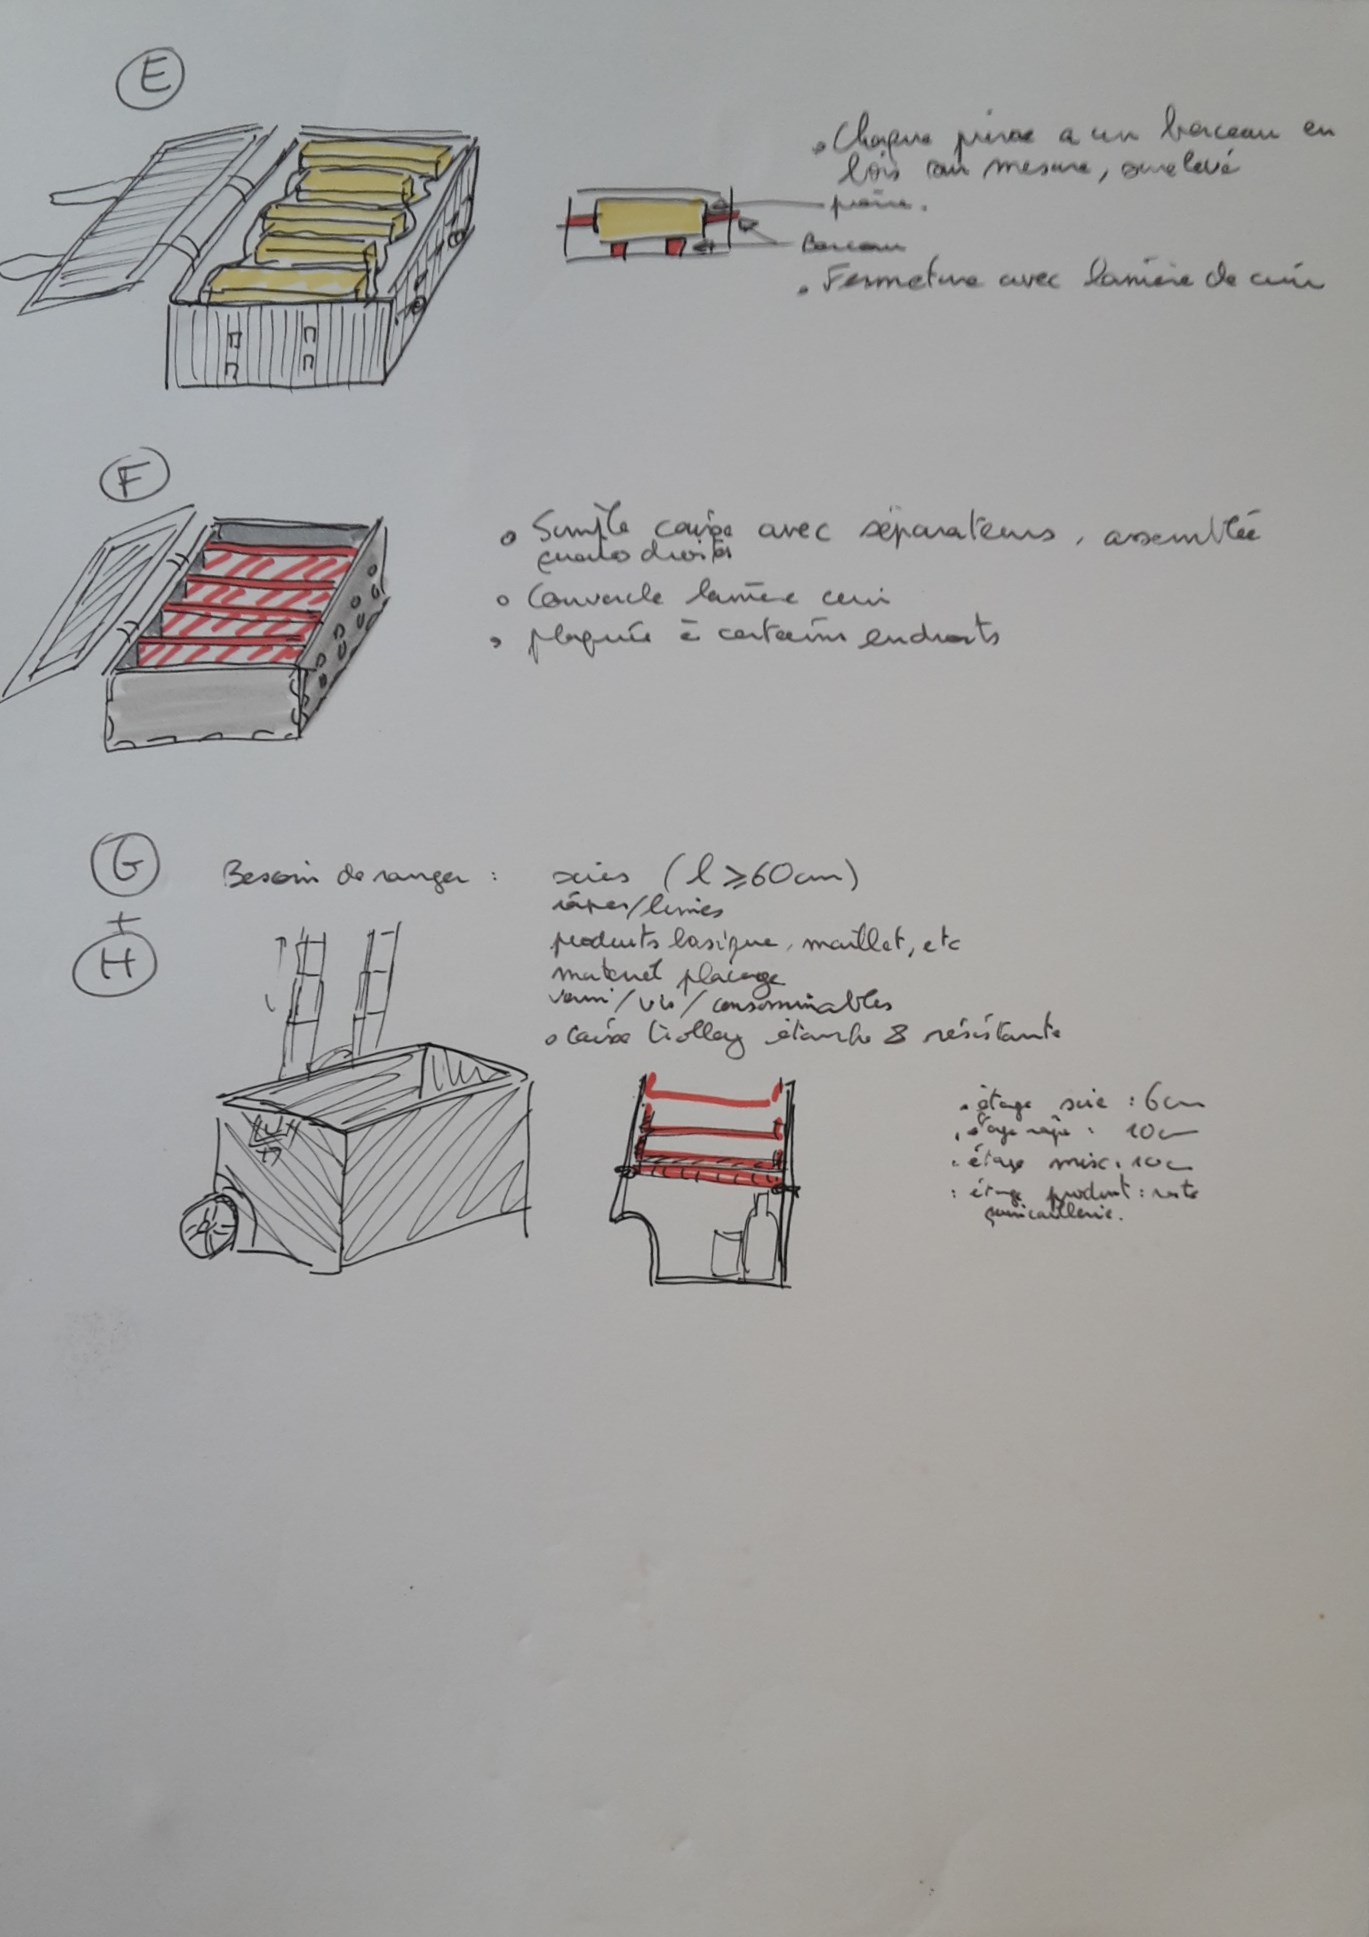 E
• Chaque pièce a un berceau en
bois sur mesure, surélevé
Berceau
• Fermeture avec lanière de cuir
F
o Simple caisse avec séparateurs, assemblée
queues droites
o Couvercle lanière cuir
• plaquée à certains endroits
G
+
H
Besoin de ranger : scies (l ⩾ 60cm)
râpes/limes
produits basique, maillet, etc
matériel placage
verni/vis/consommables
o Caisse trolley étanche & résistante
• étage scie : 6cm
• étage râpe : 10cm
• étage misc. 10cm
: étage produit : reste
quincaillerie.